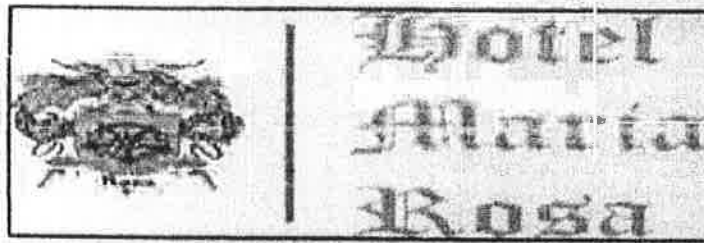 Hotel
María
Rosa